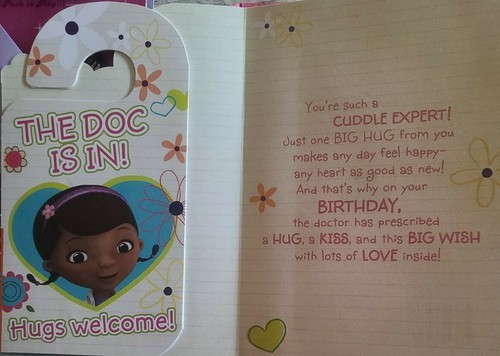 THE DOC
IS IN!
Hugs welcome!
You're such a
CUDDLE EXPERT!
Just one BIG HUG from you
makes any day feel happy–
any heart as good as new!
And that's why on your
BIRTHDAY,
the doctor has prescribed
a HUG, a KISS, and this BIG WISH
with lots of LOVE inside!